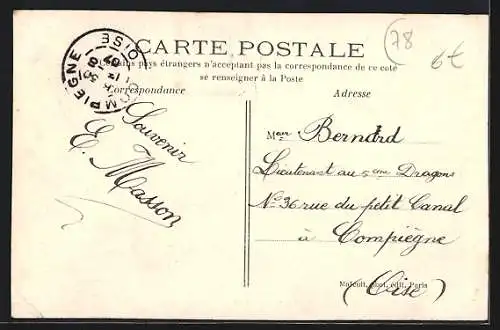 CARTE POSTALE
Certains pays étrangers n'acceptant pas la correspondance de ce coté
se renseigner à la Poste
Correspondance
Adresse
Souvenir
E. Masson
Bernard
Lieutenant au 5eme Dragons
No 36 rue du petit Canal
à Compiègne
(Oise)
édit. Paris
COMPIEGNE OISE
(78
6€